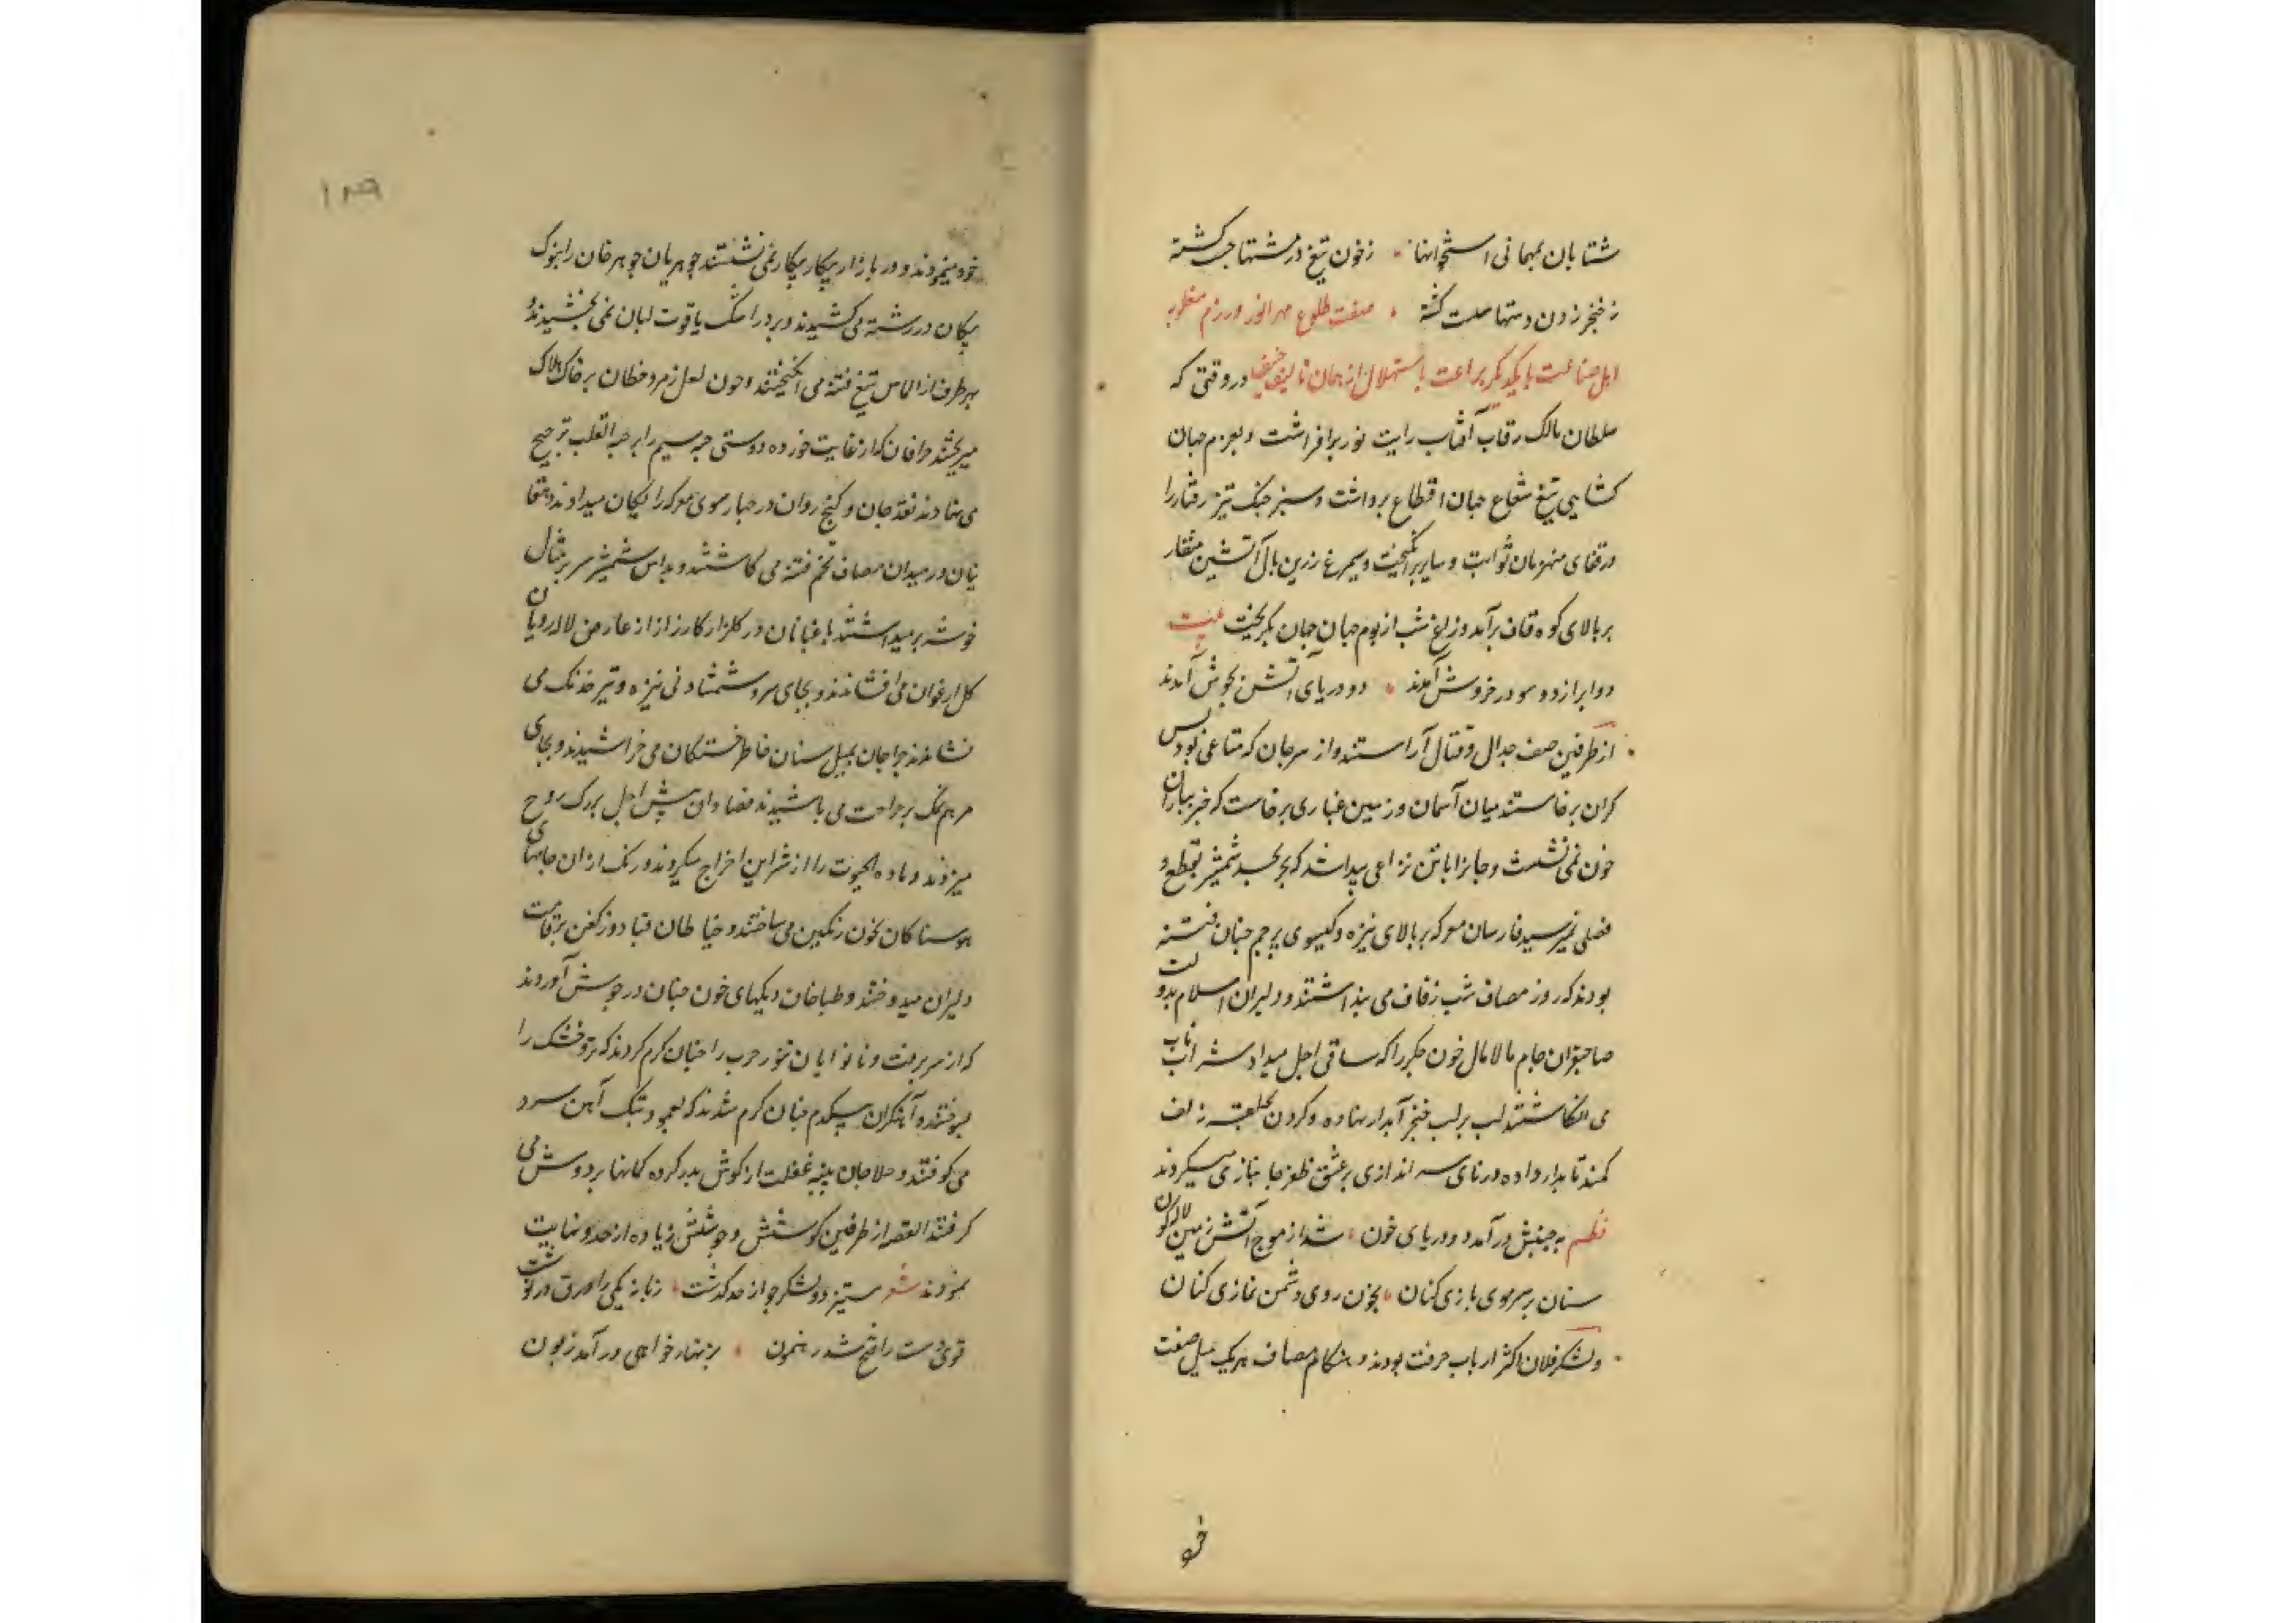 شتابان بمهمانی استخوانها زخون تیغ در مشتها چرب گشته
ز خنجر زدن دستها سست گشته صفت طلوع مهر انور و رزم مغلوبه
اهل صناعت با یکدیگر براعت باستهلال از همان تالیف در وقتی که
سلطان مالک رقاب آفتاب رایت نور برافراشت و بعزم جهان
کشایی تیغ شعاع جهان اقطاع برداشت و سبز خنک تیز رفتار را
در قفای منهزمان ثوابت و سایر برانکیخت و سیمرغ زرین بال آتشین منقار
بر بالای کوه قاف برآمد و زاغ شب از بوم جهان جهان بکریخت بیت
دو ابر از دو سو در خروش آمدند دو دریای آتش بجوش آمدند
از طرفین صف جدال و قتال آراستند و از سر جان که متاعی بود بس
کران برخاستند میان آسمان و زمین غباری برخاست که جز بباران
خون نمی نشست و جانرا با تن نزاعی پیدا شد که جز بحد شمشیر بقطع و
فصلی نمیرسید فارسان معرکه بر بالای نیزه و کیسوی پرچم چنان فتنه
بودند که روز مصاف شب زفاف می پنداشتند و دلیران اسلام بدولت
صاحبقران جام مالامال خون جکر را که ساقی اجل میداد شراب ناب
می انکاشتند لب بر لب خنجر آبدار نهاده و کردن بحلقه زلف
کمند تابدار داده در نای سراندازی بر عشق ظفر جانبازی میکردند
نظم به جنبش درآمد دو دریای خون شد از موج آتش زمین لاله کون
سنان بر سر موی بازی کنان بخون روی دشمن نمازی کنان
و لشکر فلان اکثر ارباب حرفت بودند و هنکام مصاف هر یک میل صنعت
خو
۱۸۹
خود مینمودند و در بازار پیکار بیکار نمی نشستند جوهریان جوهر جان را بنوک
پیکان در رشته می کشیدند و بر در اشک یاقوت لبان نمی بخشیدند و
بهر طرف از الماس تیغ فتنه می انکیختند و خون لعل زمرد خطان بر خاک هلاک
میریختند صرافان که از غایت خورده دوستی حبه سیم را بر حبة القلب ترجیح
می نهادند نقد جان و کنج روان در چهار سوی معرکه رایکان میدادند و دهقا
نیان در میدان مصاف تخم فتنه می کاشتند و بداس شمشیر سر بر مثال
خوشه بر میداشتند باغبانان در کلزار کارزار از عارض لاله رویان
کل ارغوان می افشاندند و بجای سرو و شمشاد نی نیزه و تیر خدنک می
نشاندند جراحان بمیل سنان خاطر خستکان می خراشیدند و بجای
مرهم نمک بر جراحت می پاشیدند فصادان نیش اجل برک روح
میزدند و ماده الحیوت را از شراین اخراج میکردند و رنک ارزان جامهای
هوسناکان بخون رنکین می ساختند و خیاطان قبا دوز کفن بر قامت
دلیران میدوختند و طباخان دیکهای خون چنان در جوش آوردند
که از سر برفت و نانوایان تنور حرب را چنان کرم کردند که تر و خشک را
بسوختند و آهنکران بیکدم چنان کرم شدند که بعمود و پتک آهن سرد
می کوفتند و حلاجان پنبه غفلت از کوش بدر کرده کمانها بر دوش می
کرفتند القصه از طرفین کوشش و جوشش زیاده از حد و نهایت
نمودند شعر ستیز دو لشکر چو از حد کذشت زمانه یکی را ورق در نوشت
قوی دست را فتح شد رهنمون بزنهار خواهی درآمد زبون